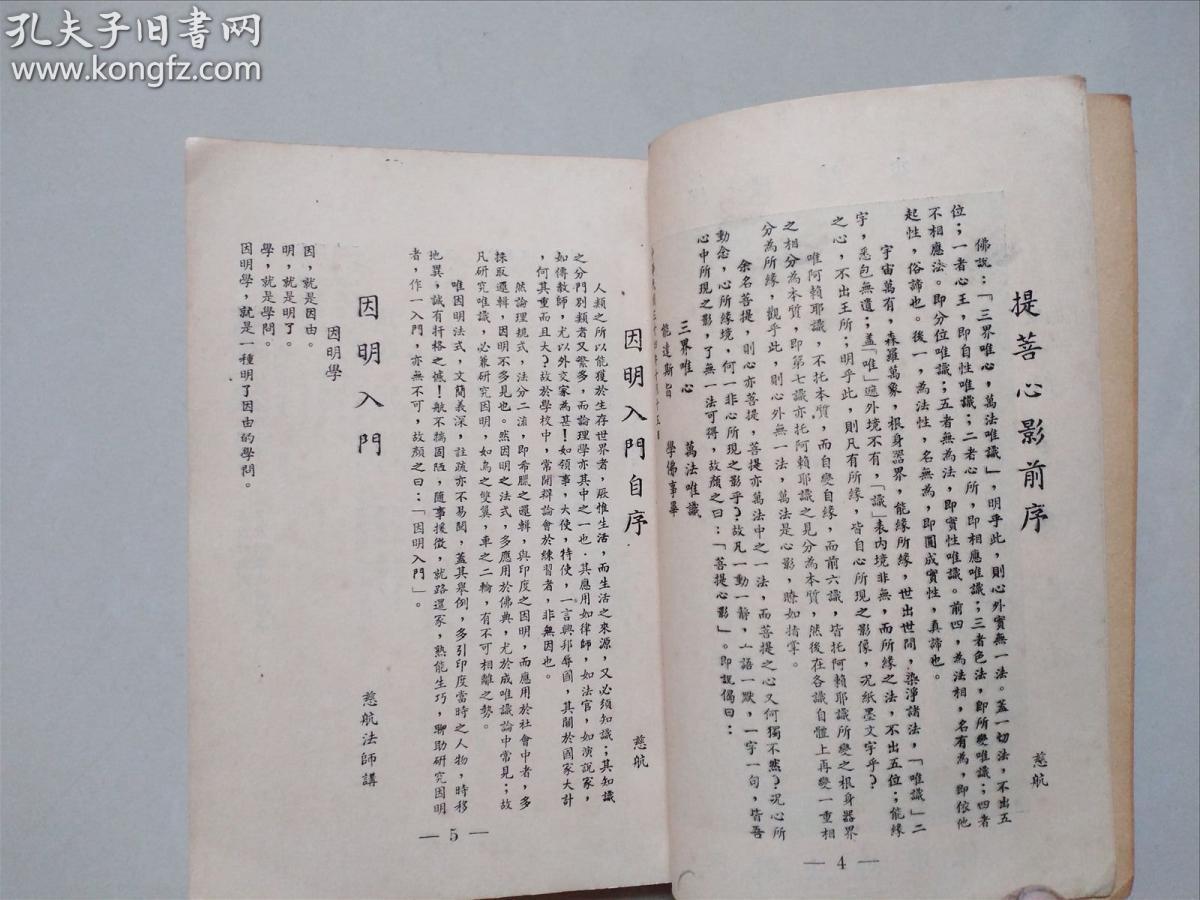 孔夫子旧书网
www.kongfz.com
提菩心影前序
慈航
佛說：「三界唯心，萬法唯識」，明乎此，則心外實無一法。蓋一切法，不出五
位；一者心王，即自性唯識；二者心所，即相應唯識；三者色法，即所變唯識；四者
不相應法。即分位唯識；五者無為法，即實性唯識。前四，為法相，名有為，即依他
起性，俗諦也。後一，為法性，名無為，即圓成實性，真諦也。
宇宙萬有，森羅萬象，根身器界，能緣所緣，世出世間，染淨諸法，「唯識」二
字，悉包無遺；蓋「唯」遮外境不有，「識」表內境非無，而所緣之法，不出五位；能緣
之心，不出王所；明乎此，則凡有所緣，皆自心所現之影像，况紙墨文字乎？
唯阿賴耶識，不托本質，而自變自緣，而前六識，皆托阿賴耶識所變之根身器界
之相分為本質，即第七識亦托阿賴耶識之見分為本質，然後在各識自體上再變一重相
分為所緣，觀乎此，則心外無一法，萬法是心影，瞭如指掌。
余名菩提，則心亦菩提，菩提亦萬法中之一法，而菩提之心又何獨不然？况心所
動念，心所緣境，何一非心所現之影乎？故凡一動一靜，一語一默，一字一句，皆吾
心中所現之影，了無一法可得，故顏之曰：「菩提心影」。即說偈曰：
三界唯心　萬法唯識
能達斯旨　學佛事畢
— 4 —
因明入門自序
慈航
人類之所以能獲於生存世界者，厥惟生活，而生活之來源，又必須知識；其知識
之分門別類者又繁多，而論理學亦其中之一也．其應用如律師，如法官，如演說家，
如傳教師，尤以外交家為甚！如領事，大使，特使，一言興邦辱國，其關於國家大計
，何其重而且大？故於學校中，常開辯論會於練習者，非無因也。
然論理規式，法分二流，即希臘之邏輯，與印度之因明，而應用於社會中者，多
採取邏輯，因明不多見也。然因明之法式，多應用於佛典，尤於成唯識論中常見；故
凡研究唯識，必兼研究因明，如鳥之雙翼，車之二輪，有不可相離之勢。
唯因明法式，文簡義深，註疏亦不易閱，蓋其舉例，多引印度當時之人物，時移
地異，誠有扞格之憾！航不揣固陋，隨事援徵，就路還家，熟能生巧，聊助研究因明
者，作一入門，亦無不可，故顏之曰：「因明入門」。
因明入門
慈航法師講
因明學
因，就是因由。
明，就是明了。
學，就是學問。
因明學，就是一種明了因由的學問。
— 5 —